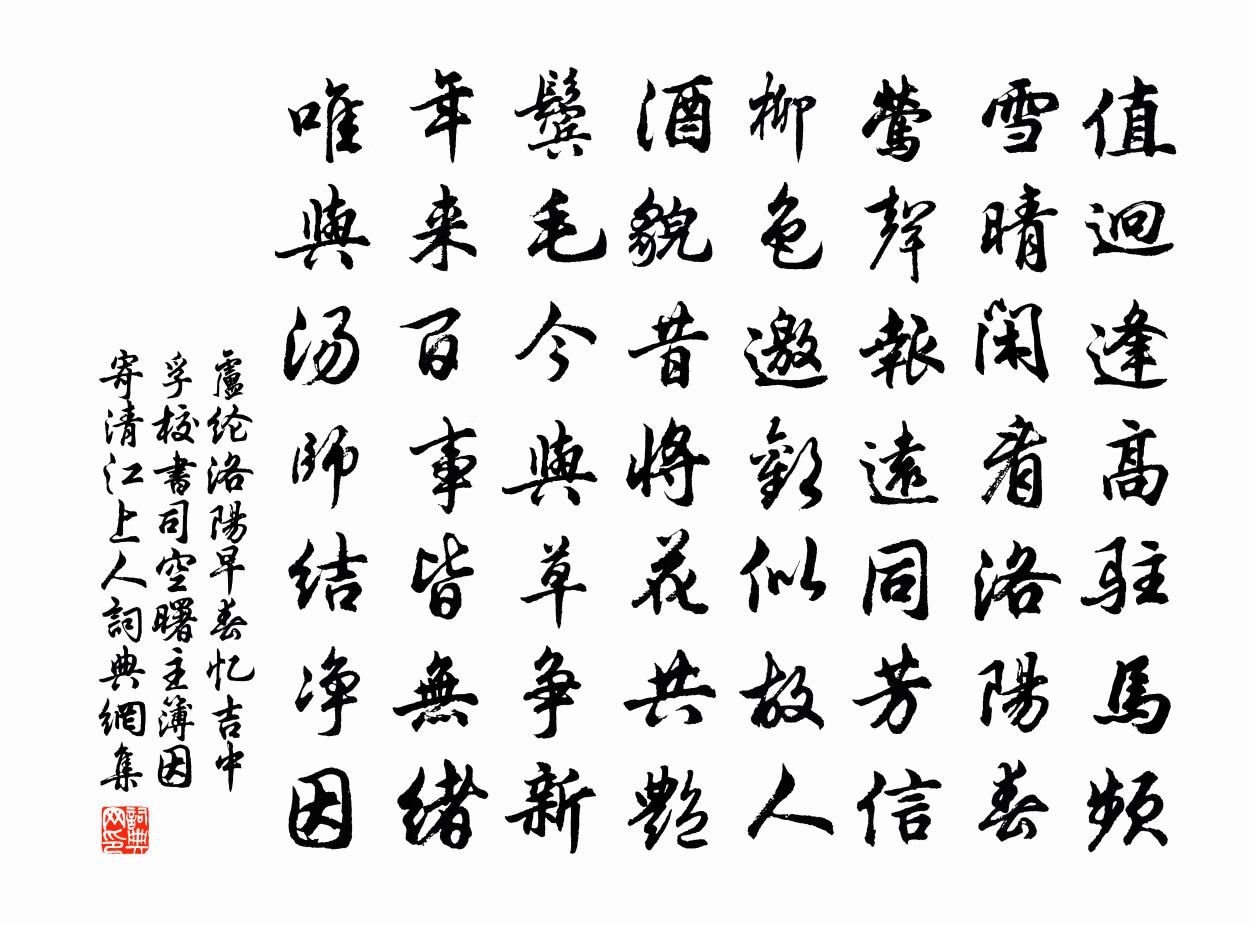 值迥逢高駐馬頻
雪晴閑看洛陽春
鶯聲報遠同芳信
柳色邀歡似故人
酒貌昔將花共艷
鬢毛今與草爭新
年来百事皆無緒
唯與湯師結净因
盧纶洛陽早春忆吉中
孚校書司空曙主簿因
寄清江上人詞典網集
詞典网印